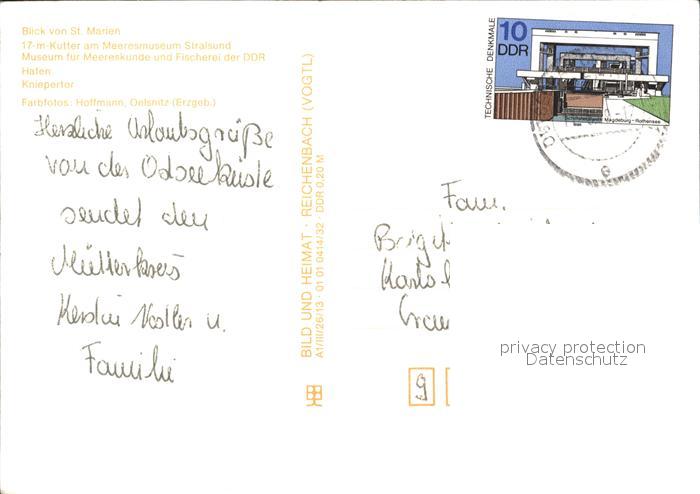 Blick von St. Marien
17-m-Kutter am Meeresmuseum Stralsund
Museum für Meereskunde und Fischerei der DDR
Hafen
Kniepertor
Farbfotos: Hoffmann, Oelsnitz (Erzgeb.)
Herzliche Urlaubsgrüße
von der Ostseeküste
sendet den
Mütterkreis
Kerstin u.
Familie
BILD UND HEIMAT · REICHENBACH (VOGTL)
A1/III/26/13 · 01 01 0414/32 · DDR 0,20 M
TECHNISCHE DENKMALE
10
DDR
Magdeburg-Rothensee
Fam.
9
privacy protection
Datenschutz